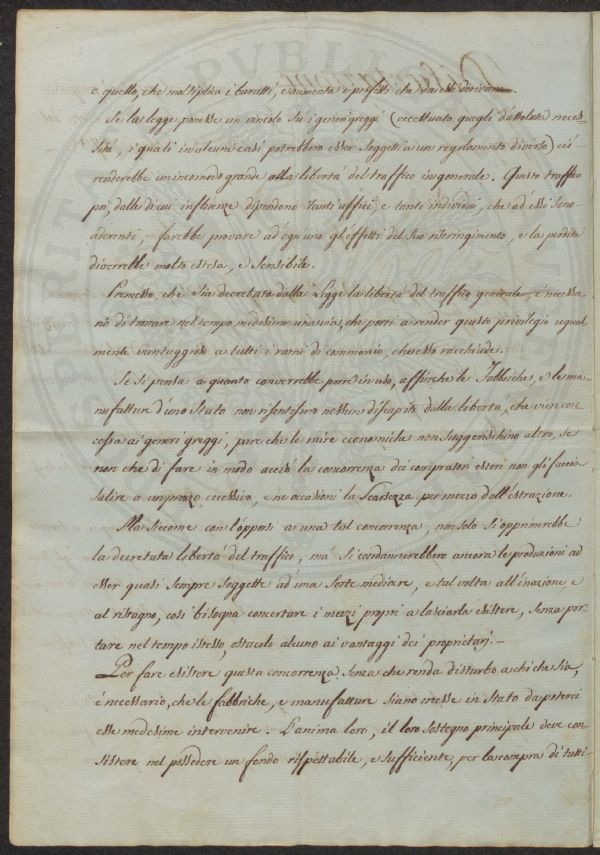 è quello, che moltiplica i baratti, e aumenta i profitti che da essi derivano.
Se la legge ponesse un vincolo sù i generi greggi (eccettuato quegli d'assoluta neces-
sità, i quali in alcuni casi potrebbero esser soggetti a un regolamento diverso) ciò
renderebbe un incomodo grande alla libertà del traffico in generale. Questo traffico
poi, dalle di cui influenze dipendono tanti uffici e tanti individui, che ad essi sono
aderenti, farebbe provare ad ogn'uno gli effetti del suo ristringimento, e la perdita
diverrebbe molto estesa, e sensibile.
Premesso, che sia decretato dalla Legge la libertà del traffico generale, è necessa-
rio di trovare nel tempo medesimo una via, che porti a render questo privilegio ugual
mente vantaggioso a tutti i rami di commercio, che esso racchiude.
Se si pensa a quanto converrebbe porre in uso, affinche le Fabbriche, e le ma-
nufatture d'uno Stato non risentissero nessun discapito dalla libertà, che vien con-
cessa ai generi greggi, pare che le mire economiche non suggerischino altro, se
non che di fare in modo acciò la concorrenza dei compratori esteri non gli faccia
salire a un prezzo eccessivo, e ne occasioni la scarsezza per mezzo dell'estrazione.
Ma siccome con l'opporsi a una tal concorrenza, non solo si opprimerebbe
la decretata libertà del traffico, mà si condannerebbero ancora le produzioni ad
esser quasi sempre soggette ad una sorte mediocre, e tal volta all'inazione, e
al ristagno, così bisogna concertare i mezzi proprj a lasciarla esistere, senza por-
tare nel tempo istesso, ostacolo alcuno ai vantaggi dei proprietarj.-
Per fare esistere questa concorrenza senza che renda disturbo a chi che sia,
è necessario, che le fabbriche, e manufatture siano messe in stato da poterci
esse medesime intervenire. L'anima loro, il loro sostegno principale deve con
sistere nel possedere un fondo rispettabile, e sufficiente, per la compra di tutti-